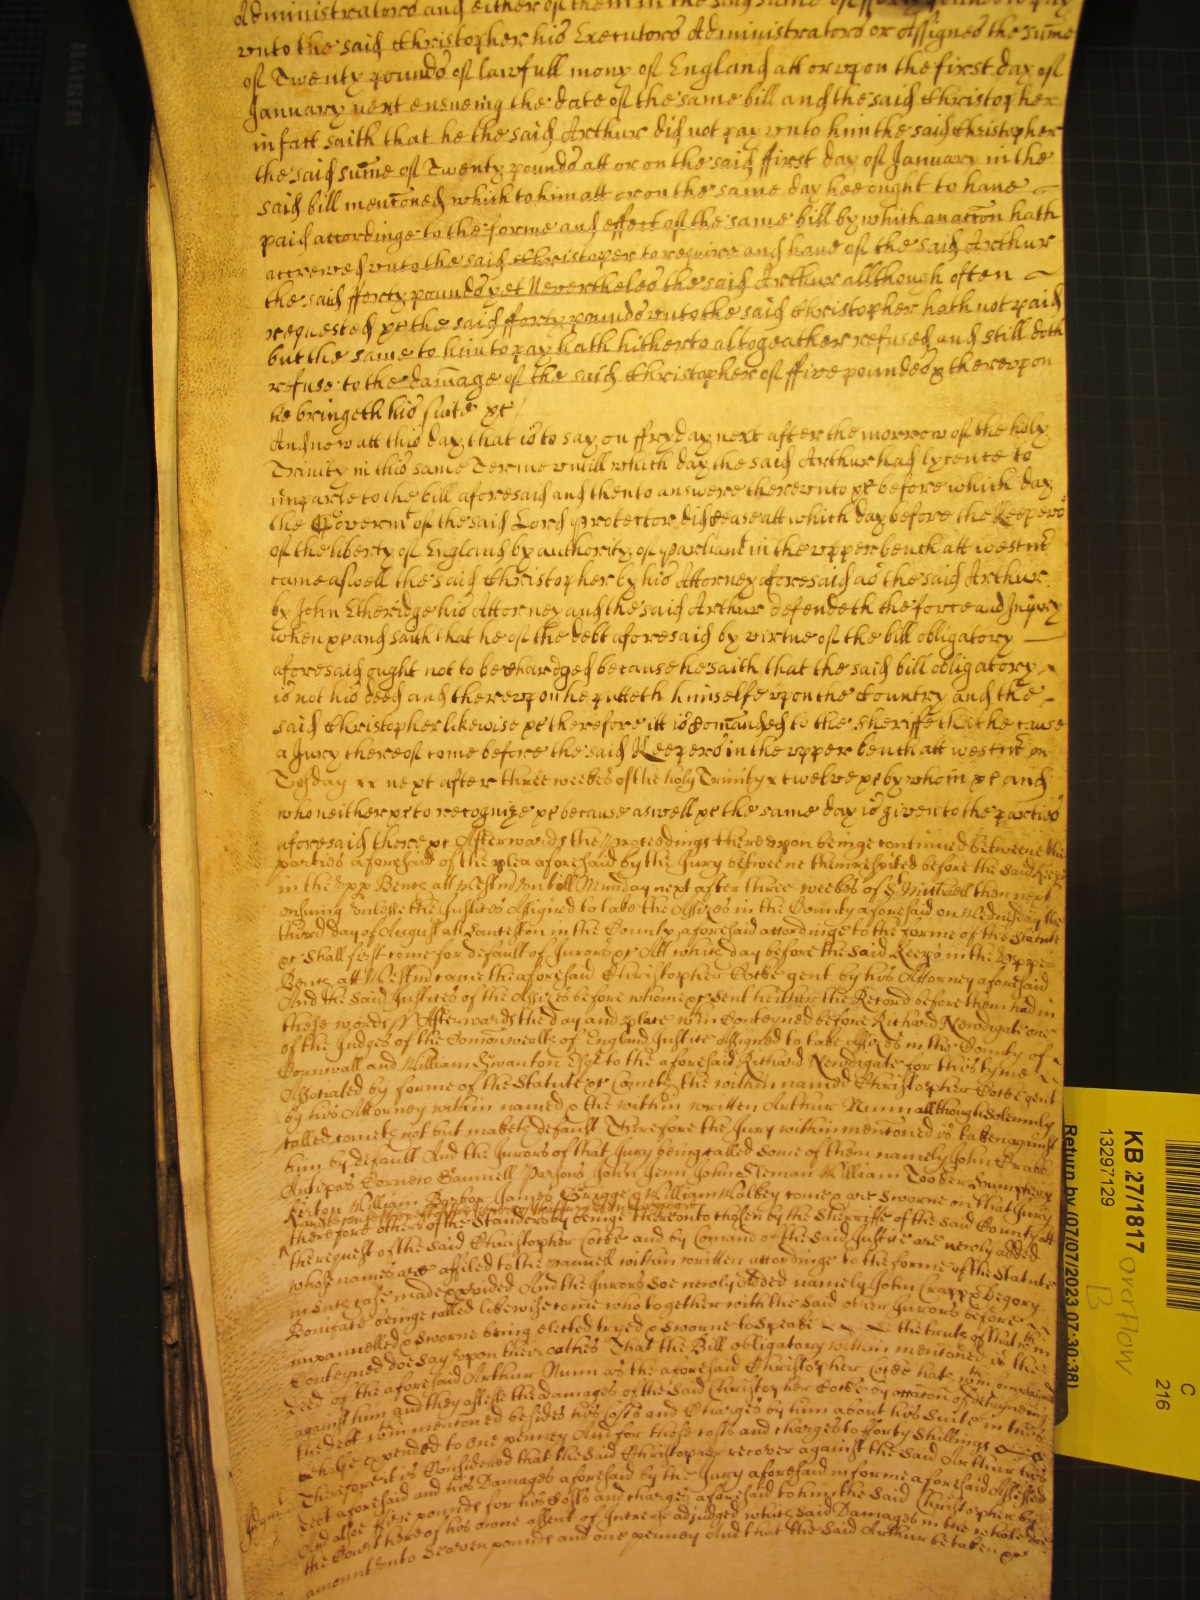 Administrators and either of them in the said sume of fforty poundes to pay
vnto the said Christopher his Executors Administrators or Assignes the sume
of Twenty pounds of lawfull mony of England att or vpon the first day of
January next ensueing the date of the same bill and the said Christopher
in fact saith that he the said Arthur did not pay vnto him the said Christopher
the said sume of Twenty pounds att or on the said ffirst day of January in the
said bill menconed which to him att or on the same day hee ought to have
paid accordinge to the forme and effect of the same bill by which an accon hath
accrewed vnto the said Christoper to require and have of the said Arthur
the said fforty pounds yet Neverthelес the said Arthur allthough often
requested &c the said fforty pounds vnto the said Christopher hath not paid
but the same to him to pay hath hitherto altogeather refused and still doth
refuse to the damage of the said Christopher of ffive poundes & therevpon
he bringeth his suite &c
And now att this day that is to say on ffryday next after the morrow of the holy
Trinity in this same Terme vntill which day the said Arthur had lycence to
imparle to the bill aforesaid and then to answere therevnto &c before which day
the Governmt of the said Lord Protector did cease att which day before the Keepers
of the liberty of England by authority of parliamt in the vpper bench att westmr
came aswell the said Christopher by his Attorney aforesaid as the said Arthur
by John Etheridge his Attorney and the said Arthur defendeth the force and Injury
when &c and saith that he of the debt aforesaid by virtue of the bill obligatory
aforesaid ought not to be chardged because he saith that the said bill obligatory
is not his deed and therevpon he putteth himselfe vpon the Country and the
said Christopher likewise &c therefore itt is comanded to the Sheriffe that he cause
a Jury thereof to come before the said Keepers in the vpper bench att westmr on
Tusday next after three weekes of the holy Trinity & twelve &c by whom &c and
who neither &c to recognize &c because aswell &c the same day is given to the parties
aforesaid there &c Afterwards the Proceedings therevpon beinge continued betweene the
parties aforesaid of the plea aforesaid by the Jury betweene them respited before the said Keepers
in the Vpp Bench att Westmr vntill Munday next after three weekes of St Michaell then next
ensuing vnlesse the Justices Assigned to take the Assizes in the County aforesaid on Wednesday the
third day of August att Lanceston in the County aforesaid accordinge to the forme of the Statute
&c shall first come for default of Jurors &c Att which day before the Said Keeprs in the Vpper
Bench att Westmr came the aforesaid Christopher Cocke gent by his Attorney aforesaid
And the Said Justices of the Assizes before whome &c sent heither the Record before them had in
these words ss Afterwards the day and place wthin Conteyned before Richard Newdigate one
of the Judges of the Comonwealth of England Justice Assigned to take Assizes in the County of
Cornwall and William Swanton Esqr to the aforesaid Richard Newdigate for this tyme
Associated by forme of the Statute &c Cometh the within named Christopher Cocke gent
by his Attorney within named & the within written Arthur Nunn allthough Solemnly
called cometh not but maketh default Therefore the Jury within mentioned is taken against
him by default And the Jurors of that Jury being called Some of them namely John Crabb
Antipas Cornew Samuell Parsons John Jenn John Sleman William Tooker Humphry
Kerton William Barbor James Brigge & William Walkey come & are Sworne on that Jury
therefore others of the Standers by beinge therevnto chosen by the Sherriffe of the said County att
the request of the Said Christopher Cocke and by Comand of the Said Justice are newly added
whose names are affiled to the pannell within written accordinge to the forme of the Statute
in such case made & provided And the Jurors soe newly added namely John Crapp & Degory
Bonifate beinge called likewise come who together with the Said other Jurors before
impannelled & Sworne being elected tryed & sworne to Speake the truth of that wthin
Conteyned doe Say vpon their oathes That the Bill obligatory within mentioned is the
Deed of the aforesaid Arthur Nunn as the aforesaid Christopher Cocke hath wthin
against him and they assesse the damages of the Said Christopher Cocke by occasion of detayneing
the debt wthin mentioned besides his Costs and Charges by him about his Suite in that
behalfe expended to one penney And for those costs and charges to fforty Shillings
Therefore it is Considered that the Said Christopher recover against the Said Arthur his
Debt aforesaid and his Damages aforesaid by the Jury aforesaid in forme aforesaid Assessed
And alsoe ffive pounds for his Costs and charges aforesaid to him the Said Christopher by
the Court here of his owne assent of Increase adjudged which Said Damages in the whole doe
amount vnto Seaven pounds and one penney And that the Said Arthur be taken &c
Judgmt
KB 27/1817 overflow
13297129
B
Return by (07/07/2023 07:30:38)
C
216